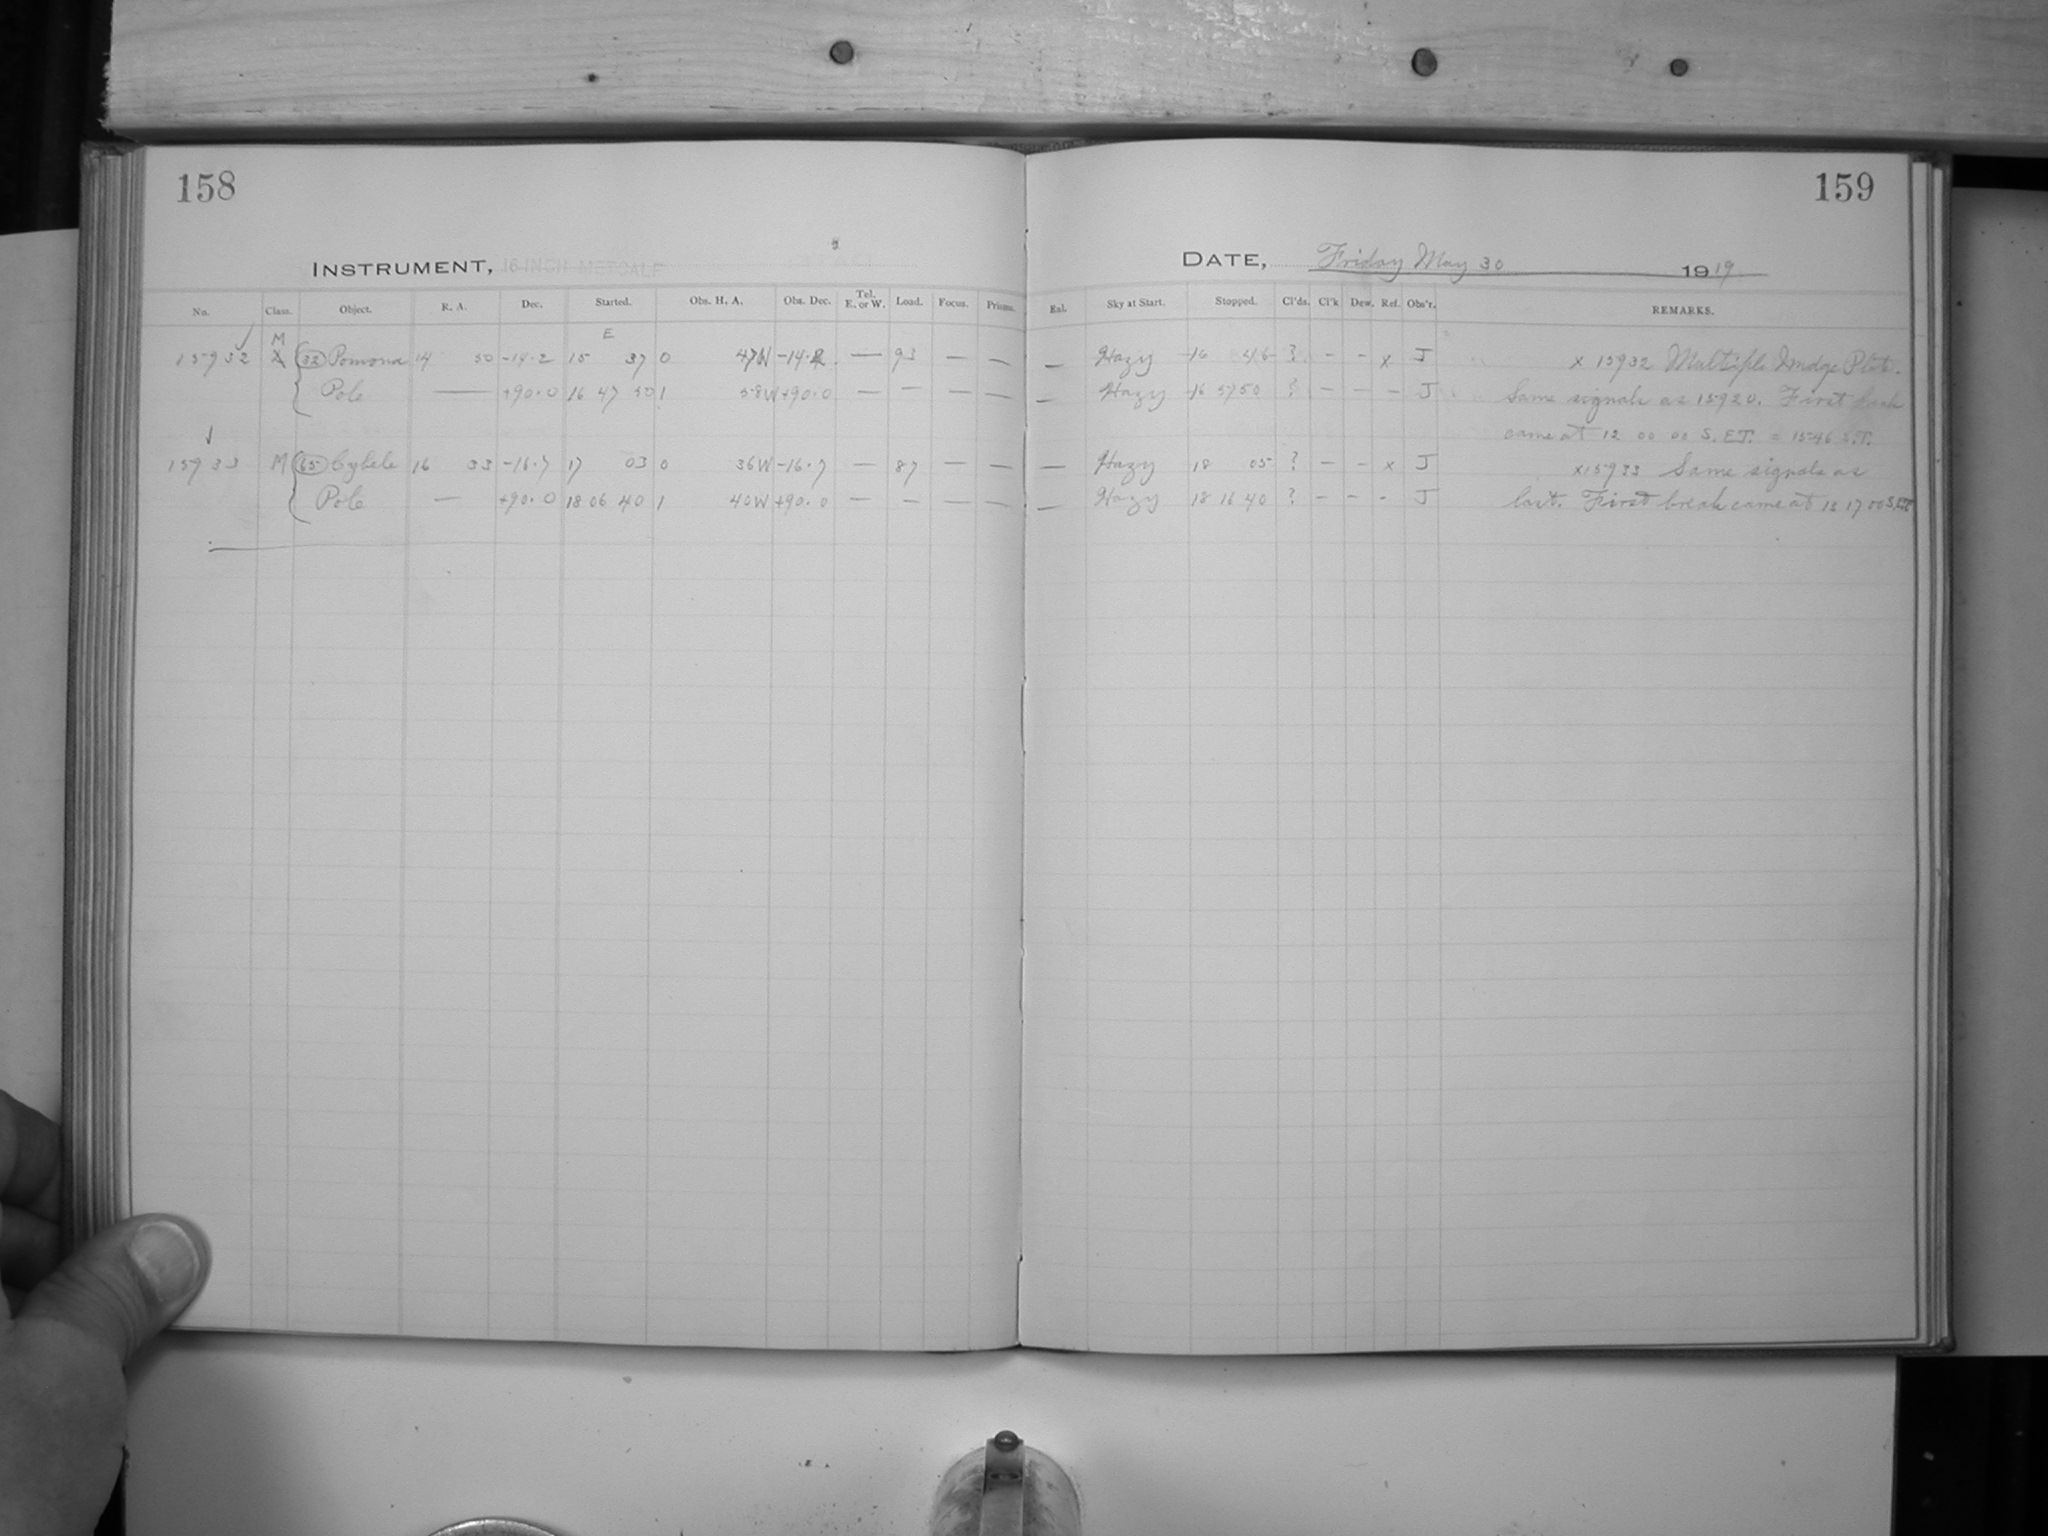 158
159
INSTRUMENT, 16 INCH METCALF
DATE, Friday May 30 1919
No. Class. Object. R. A. Dec. Started. Obs. H. A. Obs. Dec. Tel. E. or W. Load. Focus. Prisms.
Exl. Sky at Start. Stopped. Cl'ds. Cl'k Dew. Ref. Obs'r. REMARKS.
M E
15932 (32) Pomona 14 50 -14.2 15 37 0 47W -14.2 — 93 — — — Hazy 16 46 ? - - x J x 15932 Multiple Image Plate.
Pole — +90.0 16 47 50 1 58W +90.0 — — — — — Hazy 16 57 50 ? - - - J Same signals as 15920. First break
came at 12 00 00 S.E.T. = 15 46 S.T.
15933 M (65) Cybele 16 33 -16.7 17 03 0 36W -16.7 — 87 — — — Hazy 18 05 ? - - x J x 15933 Same signals as
Pole — +90.0 18 06 40 1 40W +90.0 — — — — — Hazy 18 16 40 ? - - - J last. First break came at 13 17 00 S.E.T.